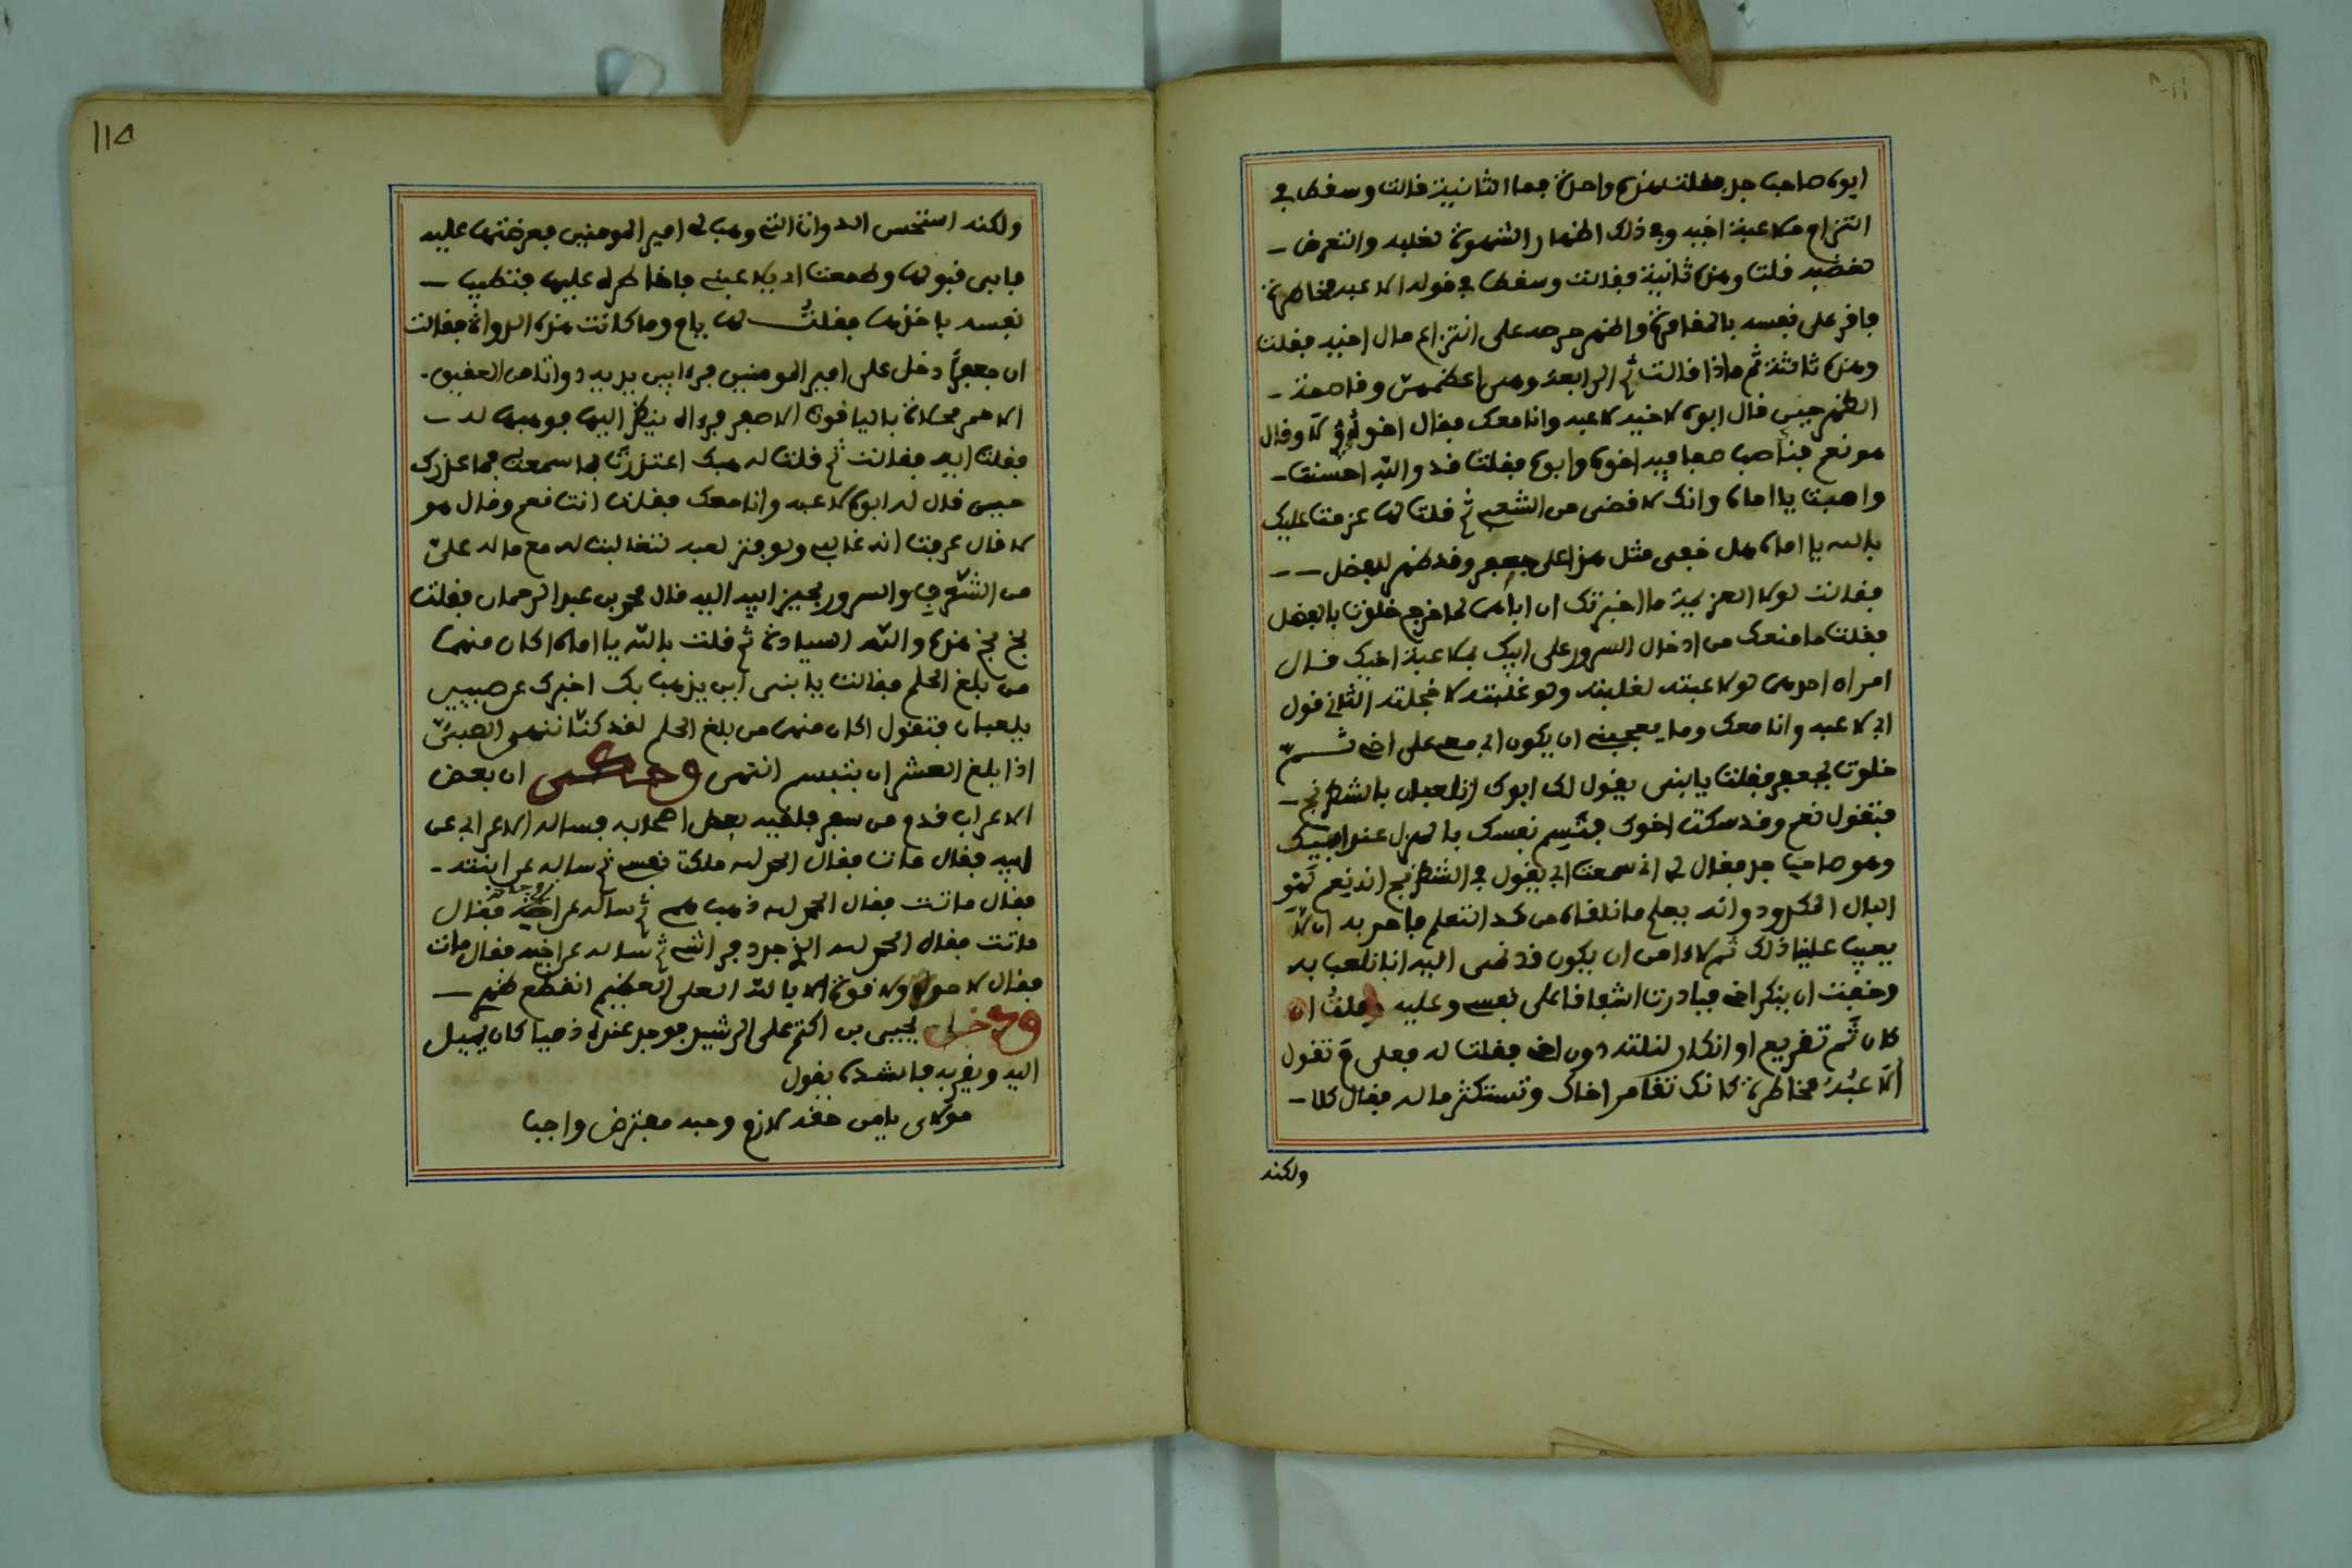 ابوه صاحب جد فقلت هذه واحدة فما الثانية قالت وسقط في
التزام ملاعبة اخيه وفي ذلك اظهار الشهوة لغلبه والتعرض
لغضبه قلت وهذه ثانية فقالت وسقط في قوله الاعبه مخاطرة
فاقر على نفسه بالمقامرة واظهر حرصه على انتزاع مال اخيه فقلت
وهذه ثالثة ثم ماذا قالت ثم الرابعة وهي اعظمهن وقاصمة
الظهر حين قال ابوه لاخيه لاعبه وانا معك فقال اخوه لا وقال
هو نعم فناصب صفا فيه اخوه وابوه فقلت قد والله احسنت
واصبت يا اماه وانك لاقضى من الشعبي ثم قلت لها عزمت عليك
بالله يا اماه هل خفى مثل هذا على جعفر وقد ظهر للفضل
فقالت لولا العزيمة ما اخبرتك ان اباهما لما خرج خلوت بالفضل
فقلت ما منعك من ادخال السرور على ابيك بملاعبة اخيك قال
امران احدهما لو لاعبته لغلبته ولو غلبته لاخجلته الثاني قول
ابي لاعبه وانا معك وما يعجبني ان يكون ابي معي على اخي ثم
خلوت بجعفر فقلت يا بني يقول لك ابوك اتلعبان بالشطرنج
فتقول نعم وقد سكت اخوك فتسم نفسك بالهزل عند ابيك
وهو صاحب جد فقال لي اني سمعت ابي يقول في الشطرنج انه نعم لهو
البال المكدود وانه يعلم ما نلقاه من كد التعلم فاحر به ان لا
يعيب علينا ذلك ثم لا امن ان يكون قد نمى اليه انا نلعب به
وخفت ان ينكر اخي فبادرت اشفاقا على نفسي وعليه وقلت ان
كان ثم تقريع او انكار لنلته دون اخي فقلت له فعلى م تقول
الاعبه مخاطرة كانك تقامر اخاك وتستكثر ماله فقال كلا
ولكنه
١١٥
ولكنه استحسن الدواة التي وهب لي امير المومنين فعرضتها عليه
فابى قبولها وطمعت ان يلاعبني فاخاطره عليها فتطيب
نفسه باخذها فقلت لها ياه وما كانت هذه الدواة فقالت
ان جعفرا دخل على امير المومنين فرءا بين يديه دواة من العقيق
الاحمر محلاة بالياقوت الاصفر فرءاه ينظر اليها فوهبها له
فقلت ايه فقالت ثم قلت له هبك اعتذرت بما سمعت فما عذرك
حين قال له ابوه لاعبه وانا معك فقلت انت نعم وقال هو
لا قال عرفت انه غالبي ولو فتر لعبه لتغالبت له مع ماله علي
من الشغوف والسرور بحيز ابيه اليه قال محمد بن عبد الرحمان فقلت
بخ بخ هذه والله السيادة ثم قلت بالله يا اماه اكان منهما
من بلغ الحلم فقالت يا بني اين يذهب بك اخبرك عن صبيين
يلعبان فتقول اكان منهما من بلغ الحلم لقد كنا ننهى الصبي
اذا بلغ العشر ان يتبسم انتهى وحكى ان بعض
الاعراب قدم من سفر فلقيه بعض اصحابه فساله الاعرابي عن
ابيه فقال مات فقال الحمد لله ملكت نفسي ثم ساله عن ابنته
فقال ماتت فقال الحمد لله ذهب همي ثم ساله عن زوجته فقال
ماتت فقال الحمد لله الذي جدد فراشي ثم ساله عن اخيه فقال مات
فقال لا حول ولا قوة الا بالله العلي العظيم انقطع ظهري
ودخل يحيى بن اكثم على الرشيد فوجد عنده ذميا كان يميل
اليه ويقربه فانشده يقول
مولاي يا من حقه لازم وحبه مفترض واجب